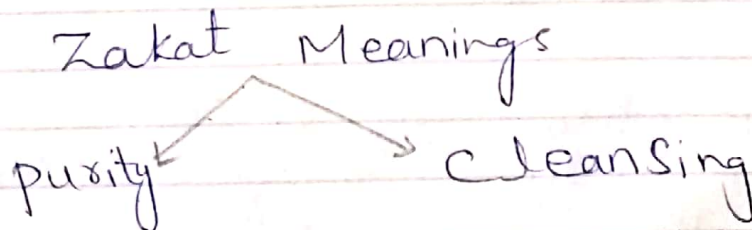 Zakat Meanings
purity cleansing